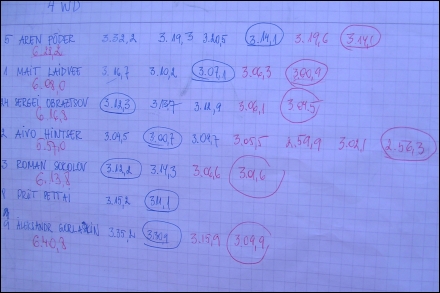 4 WD
5 AREN PÕDER 3.32,2 3.19,3 3.20,5 3.14,1 3.19,6 3.14,1
1 MAIT 3.16,7 3.10,2 3.07,1 3.06,3 3.00,9
6.08,0
14 SERGEI OBRAZTSOV 3.12,3 3.11,9 3.06,1
6.16,8
2 AIVO HINTSER 3.09,5 3.00,7 3.09,7 3.05,5 2.59,9 3.02,1 2.56,3
3 ROMAN SOCOLOV 3.12,2 3.14,3 3.06,6
6.13,8
8 PRIIT PETTAI 3.15,2
9 3.35,2 3.15,9 3.09,9
6.40,8